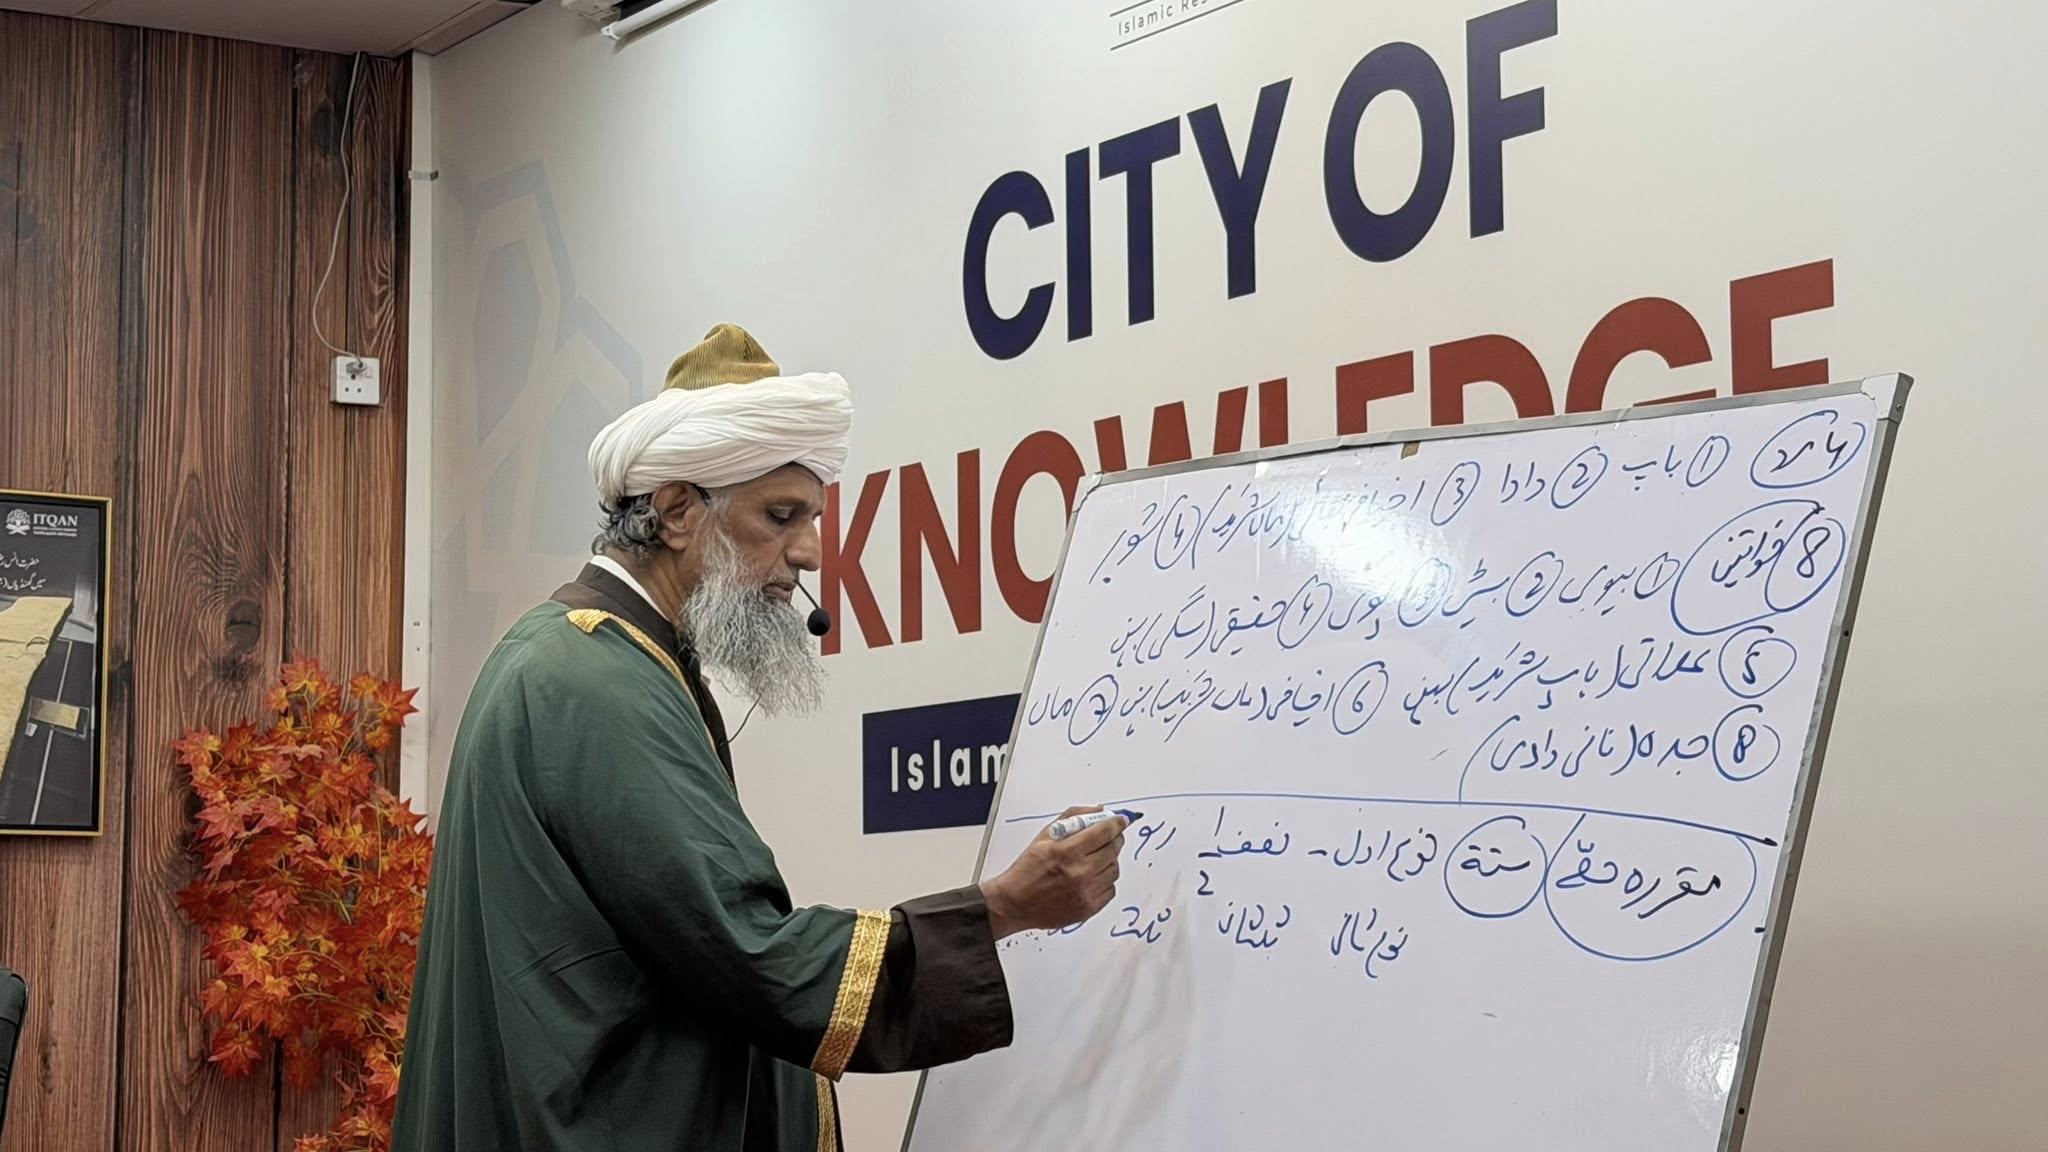 Islamic Res
CITY OF
KNOWLEDGE
Islam
ITQAN
حضرت انس
میں گھنڈیاں
4 مرد ① باپ ② دادا ③ اخیافی بھائی (ماں شریک) ④ شوہر
8 خواتین ① بیوی ② بیٹی ③ پوتی ④ حقیقی (سگی) بہن
⑤ علاتی (باپ شریک) بہن ⑥ اخیافی (ماں شریک) بہن ⑦ ماں
⑧ جدہ (نانی دادی)
مقررہ حصے ستة نوع اول - نصف 1/2 ربع
نوع ثانی ثلثان ثلث